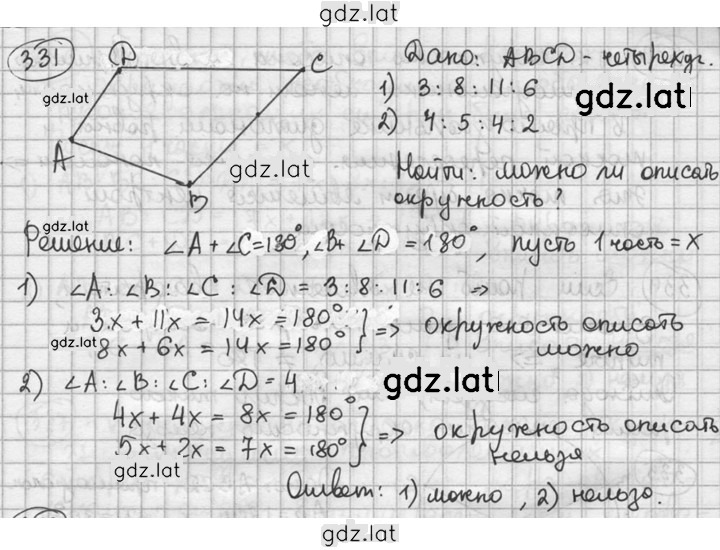 gdz.lat
331
D
C
gdz.lat
gdz.lat
A
B
Дано: ABCD - четырехуг.
1) 3 : 8 : 11 : 6
gdz.lat
2) 4 : 5 : 4 : 2
Найти: можно ли описать
окружность?
gdz.lat
Решение: ∠A + ∠C = 180°, ∠B + ∠D = 180°, пусть 1 часть = x
1) ∠A : ∠B : ∠C : ∠D = 3 : 8 : 11 : 6 =>
3x + 11x = 14x = 180°
gdz.lat
8x + 6x = 14x = 180° } => окружность описать
можно
2) ∠A : ∠B : ∠C : ∠D = 4
gdz.lat
4x + 4x = 8x = 180°
5x + 2x = 7x = 180° } => окружность описать
нельзя
gdz.lat
Ответ: 1) можно, 2) нельзя.
gdz.lat